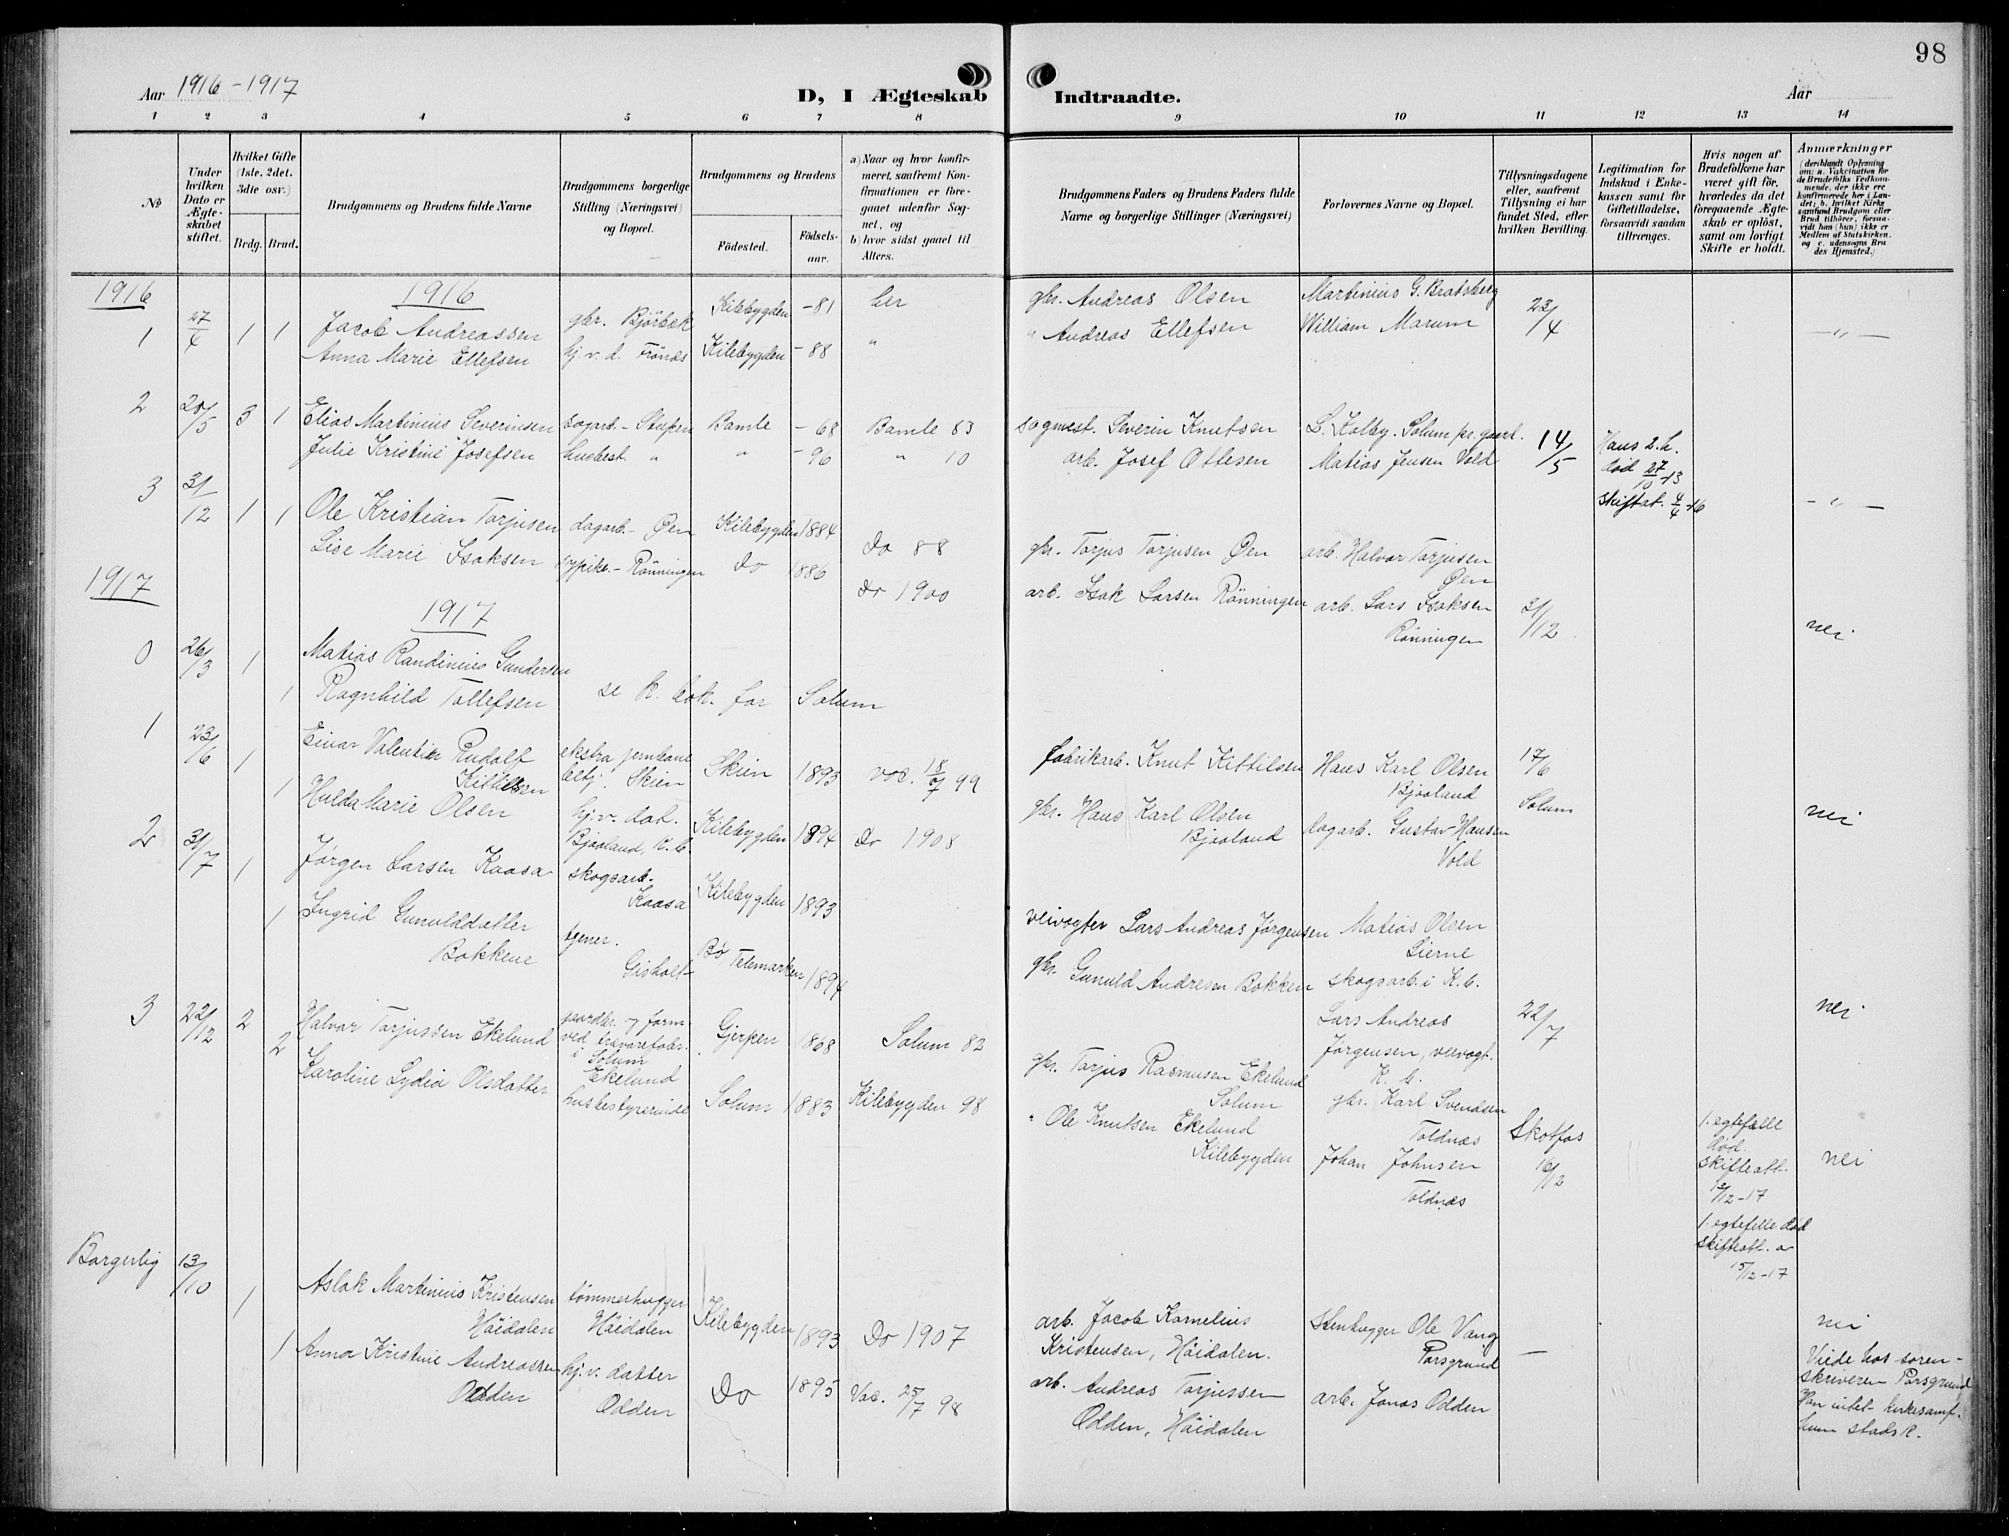 98
Aar 1916-1917
D, I Ægteskab Indtraadte.
Aar
1 2 3 4 5 6 7 8 9 10 11 12 13 14
No
Under hvilken Dato er Ægteskabet stiftet.
Hvilket Gifte (1ste, 2det. 3die osv.)
Brdg. Brud.
Brudgommens og Brudens fulde Navne
Brudgommens borgerlige Stilling (Næringsvei) og Bopæl.
Brudgommens og Brudens
Födested.
Födsels-aar.
a) Naar og hvor konfirmeret, saafremt Konfirmationen er foregaaet udenfor Sognet, og
b) hvor sidst gaael til Alters.
Brudgommens Faders og Brudens Faders fulde Navne og borgerlige Stillinger (Næringsvei)
Forlovernes Navne og Bopæl.
Tillysningsdagene eller, saafremt Tillysning ei har fundet Sted, efter hvilken Bevilling.
Legitimation for Indskud i Enkekassen samt for Giftetilladelse, forsaavidt saadan tiltrænges.
Hvis nogen af Brudefolkene har været gift för, hvorledes da det foregaaende Ægteskab er oplöst, samt om lovligt Skifte er holdt.
Anmærkninger
(deriblandt Oplysning om: a. Vaccination for de Brudefolks Vedkommende, der ikke ere konfirmerede her i Landet; b. hvilket Kirkesamfund Brudgom eller Brud tilhörer, forsaavidt han (hun) ikke er Medlem af Statskirken, og c. udensogns Brudes Hjemsted.)
1916
1916
1 27/4 1 1 Jacob Andreassen gbr. Björbæk Kilebygden -81 her gbr. Andreas Olsen Martinius G. Bratsberg 23/4 -"-
Anna Marie Ellefsen hj. v. d. Frönæs Kilebygden -88 " " Andreas Ellefsen William Marum
2 28/5 3 1 Elias Martinius Severinsen sagarb. - Stupen Bamle -68 Bamle 83 sogmest. Severin Knutsen L. Kolby. Solum pr. gaard. 14/5 Hans 2. h. död 27/10 13 skiftat. 4/4 -16 -"-
Julie Kristine Josefsen husbest. " " -96 " 10 arb. Josef Ottesen Matias Jensen Vold
3 31/12 1 1 Ole Kristian Torjusen dagarb. - Øen Kilebygden 1884 do 88 gbr. Torjus Torjusen Øen arb. Halvor Torjusen Øen
Lise Marie Isaksen sypike. - Rönningen do 1886 do 1900 arb. Isak Larsen Rönningen arb. Lars Isaksen Rönningen 31/12 nei
1917
1917
0 26/3 1 Matias Randinius Gundersen
1 Ragnhild Tollefsen se k. bok. for Solum
1 23/6 1 Einar Valentin Rudolf Kittilsen ekstra jernbane betj. Skien Skien 1893 vac. 18/7 99 fabrikarb. Knut Kittilsen Hans Karl Olsen Bjaaland 17/6 Solum
1 Hulda Marie Olsen hj. v. dat. Bjaaland, K. b. Kilebygden 1894 do 1908 gbr. Hans Karl Olsen Bjaaland dagarb. Gustav Hansen Vold nei
2 31/7 1 Jørgen Larsen Kaasa skogsarb. Kaasa Kilebygden 1893 veivogter Lars Andreas Jørgensen Matias Olsen Lierne skogsarb. i K. b.
1 Ingrid Gunulddatter Bakkene tjener. Gisholt Bø Telemarken 1894 gbr. Gunuld Andresen Bakken Lars Andreas Jørgensen, veivogt. K. b. 22/7 nei
3 22/12 2 Halvor Torjussen Ekelund gaardbr. og form. ved trævarefabr. i Solum Ekelund Gjerpen 1868 Solum 82 gbr. Torjus Rasmusen Ekelund Solum gbr. Karl Svendsen Toldnæs Skotfos 16/12 1. egtefælle död. skifteatt. 15/12-17 nei
2 Karoline Lydia Olsdatter husbestyrerinde Solum 1883 Kilebygden 98 " Ole Knutsen Ekelund Kilebygden Johan Johnsen Toldnæs 1. egtefelle död skifteatt. a 15/12-17
Borgerlig 13/10 1 Aslak Martinius Kristensen Häidalen tömmerhugger Häidalen Kilebygden 1893 do 1907 arb. Jacob Kornelius Kristensen, Häidalen. Stenhugger Ole Vang Porsgrund - nei
1 Anna Kristine Andreassen Odden hj. v. datter Odden do 1895 Vac. 25/7 98 arb. Andreas Torjussen Odden, Häidalen arb. Jonas Odden Viede hos sorenskriveren Porsgrund Han intet kirkesamf. hun stads K.